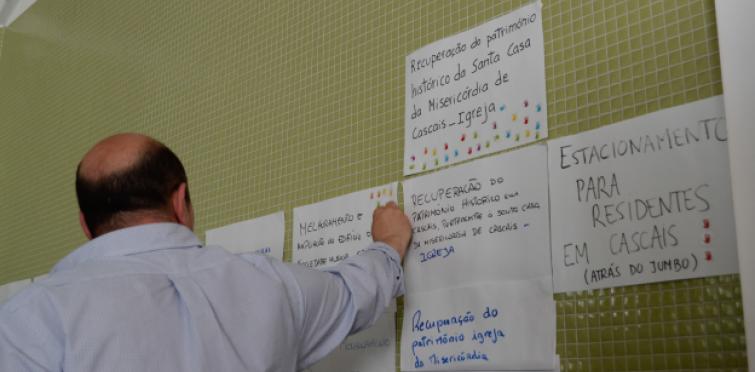 Recuperação do património
histórico da Santa Casa
da Misericórdia de
Cascais_Igreja
MELHORAMENTO E
AMPLIAÇÃO DO EDIFÍCIO D
SOCIEDADE MUSICAL
RECUPERAÇÃO DO
PATRIMÓNIO HISTÓRICO EM
CASCAIS, PERTENCENTE À SANTA CASA
DA MISERICÓRDIA DE CASCAIS -
IGREJA
Recuperação do
património igreja
da Misericórdia
ESTACIONAMENTO
PARA
RESIDENTES
EM CASCAIS
(ATRÁS DO JUMBO)